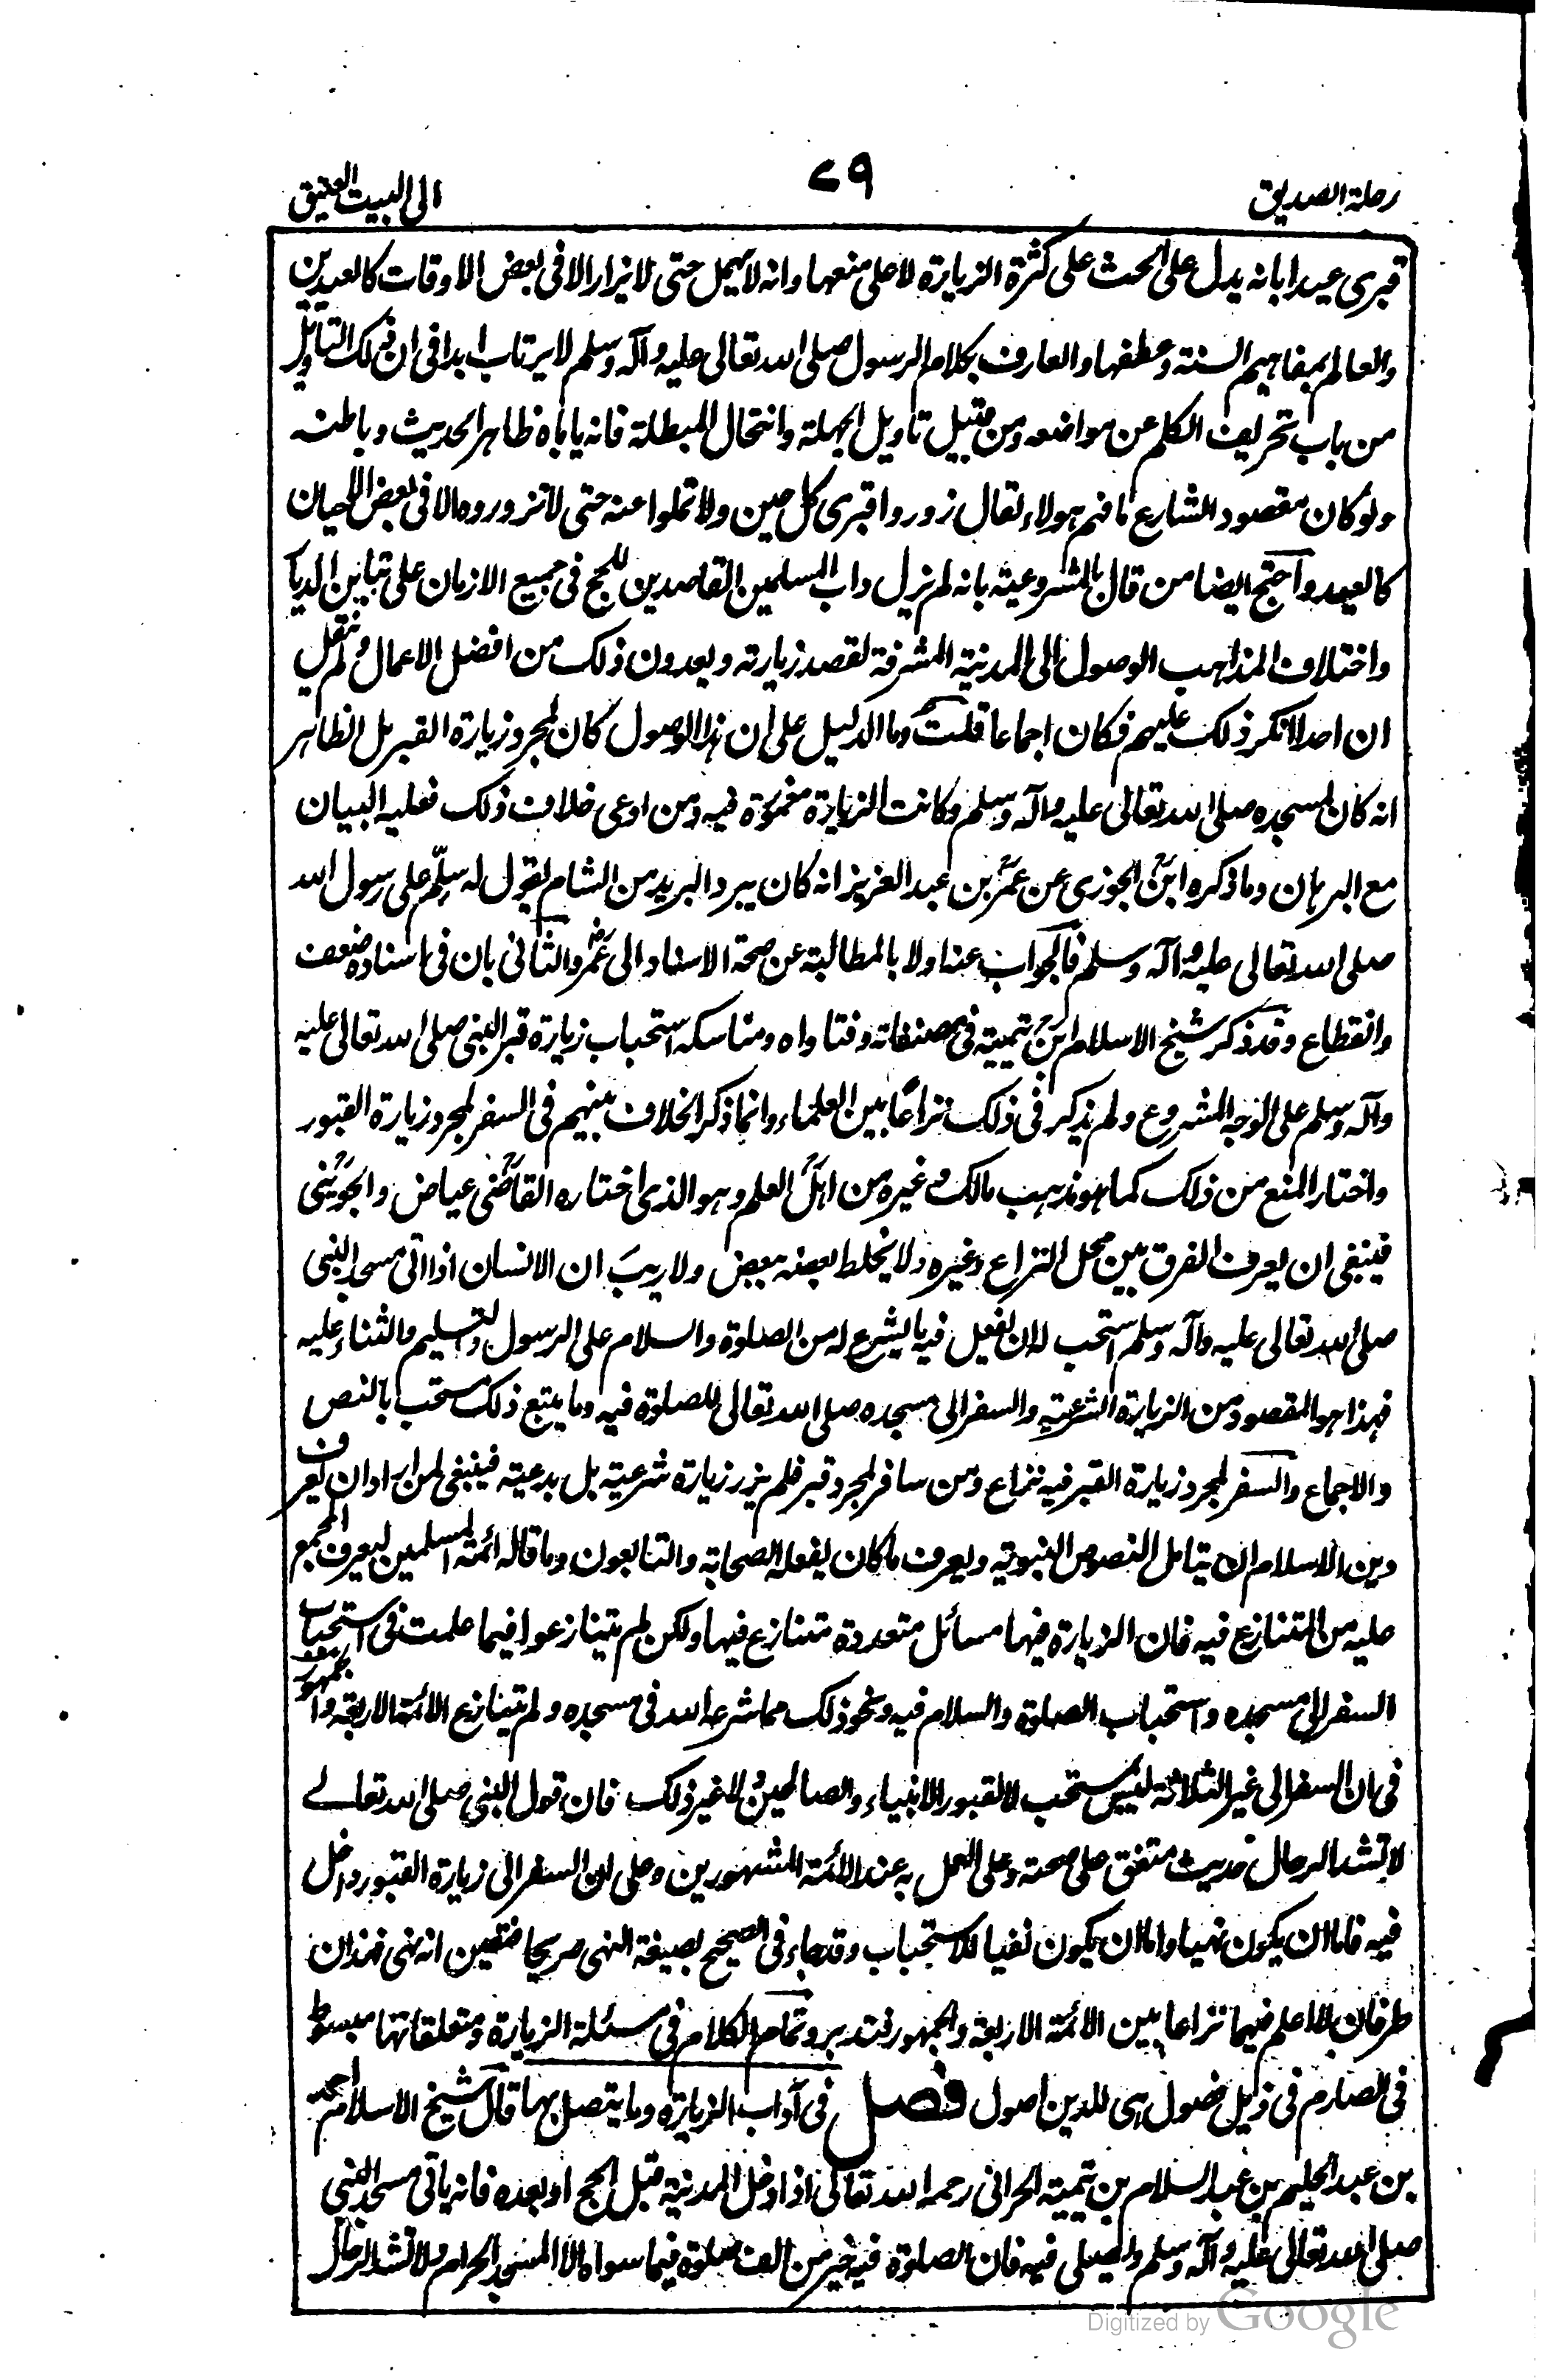 رحلة الصديق
٧٩
الى البيت العتيق
قبرى عيدا بانه يدل على الحث على كثرة الزيارة لا على منعها وانه لا يهمل حتى لا يزار الا فى بعض الاوقات كالعيدين
والعالم بمفاهيم السنة وعطفها والعارف بكلام الرسول صلى الله تعالى عليه وآله وسلم لا يرتاب ابدا فى ان ذلك التاويل
من باب تحريف الكلم عن مواضعه ومن قبيل تاويل الجهلة وانتحال المبطلة فانه ياباه ظاهر الحديث وباطنه
ولو كان مقصود الشارع ما فهم هولاء لقال زوروا قبرى كل حين ولا تملوا عنه حتى لا تزوروه الا فى بعض الاحيان
كالعيد واحتج ايضا من قال بالمشروعية بانه لم يزل داب المسلمين القاصدين للحج فى جميع الازمان على تباين الديا
واختلاف المذاهب الوصول الى المدينة المشرفة لقصد زيارته ويعدون ذلك من افضل الاعمال ولم ينقل
ان احدا انكر ذلك عليهم فكان اجماعا قلت وما الدليل على ان هذا الوصول كان لمجرد زيارة القبر بل الظاهر
انه كان لمسجده صلى الله تعالى عليه وآله وسلم وكانت الزيارة مغمورة فيه ومن ادعى خلاف ذلك فعليه البيان
مع البرهان وما ذكره ابن الجوزى عن عمر بن عبد العزيز انه كان يبرد البريد من الشام يقول له سلم على رسول الله
صلى الله تعالى عليه وآله وسلم فالجواب عنه اولا بالمطالبة عن صحة الاسناد الى عمر والثانى بان فى اسناده ضعف
وانقطاع وقد ذكر شيخ الاسلام ابن تيمية فى مصنفاته وفتاواه ومناسكه استحباب زيارة قبر النبى صلى الله تعالى عليه
وآله وسلم على الوجه المشروع ولم يذكر فى ذلك نزاعا بين العلماء وانما ذكر الخلاف بينهم فى السفر لمجرد زيارة القبور
واختار المنع من ذلك كما هو مذهب مالك وغيره من اهل العلم وهو الذى اختاره القاضى عياض والجوينى
فينبغى ان يعرف الفرق بين محل النزاع وغيره ولا يخلط بعضه ببعض ولا ريب ان الانسان اذا اتى مسجد النبى
صلى الله تعالى عليه وآله وسلم استحب له ان يفعل فيه ما يشرع له من الصلوة والسلام على الرسول والتسليم والثناء عليه
فهذا هو المقصود من الزيارة الشرعية والسفر الى مسجده صلى الله تعالى للصلوة فيه وما يتبع ذلك مستحب بالنص
والاجماع والسفر لمجرد زيارة القبر فيه نزاع ومن سافر لمجرد قبر فلم يزر زيارة شرعية بل بدعية فينبغى لمن اراد ان يعرف
دين الاسلام ان يتامل النصوص النبوية ويعرف ما كان يفعله الصحابة والتابعون وما قاله ائمة المسلمين ليعرف المجمع
عليه من المتنازع فيه فان الزيارة فيها مسائل متعددة متنازع فيها ولكن لم يتنازعوا فيما علمت فى استحباب
السفر الى مسجده واستحباب الصلوة والسلام فيه ونحو ذلك مما شرعه الله فى مسجده ولم يتنازع الائمة الاربعة والجمهور
فى ان السفر الى غير الثلاثة ليس بمستحب لا لقبور الانبياء والصالحين ولا لغير ذلك فان قول النبى صلى الله تعالے
لا تشد الرحال حديث متفق على صحته وعلى العمل به عند الائمة المشهورين وعلى ان السفر الى زيارة القبور داخل
فيه فاما ان يكون نهيا واما ان يكون نفيا للاستحباب وقد جاء فى الصحيح بصيغة النهى صريحا فتعين انه نهى فهذان
طرفان لا اعلم فيهما نزاعا بين الائمة الاربعة والجمهور فتدبر وتمام الكلام فى مسئلة الزيارة ومتعلقاتها مبسوط
فى الصارم فى ذيل فصول هى للدين اصول فصل فى آداب الزيارة وما يتصل بها قال شيخ الاسلام احمد
بن عبد الحليم بن عبد السلام بن تيمية الحرانى رحمه الله تعالى اذا دخل المدينة قبل الحج او بعده فانه ياتى مسجد النبى
صلى الله تعالى عليه وآله وسلم ويصلى فيه فان الصلوة فيه خير من الف صلوة فيما سواه الا المسجد الحرام ولا تشد الرحال
Digitized by Google